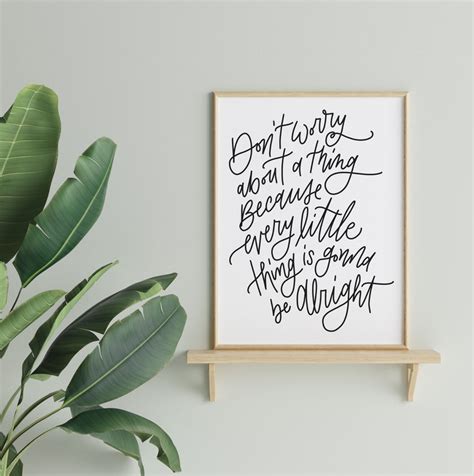 Don't worry
about a thing
Because
every little
thing is gonna
be Alright